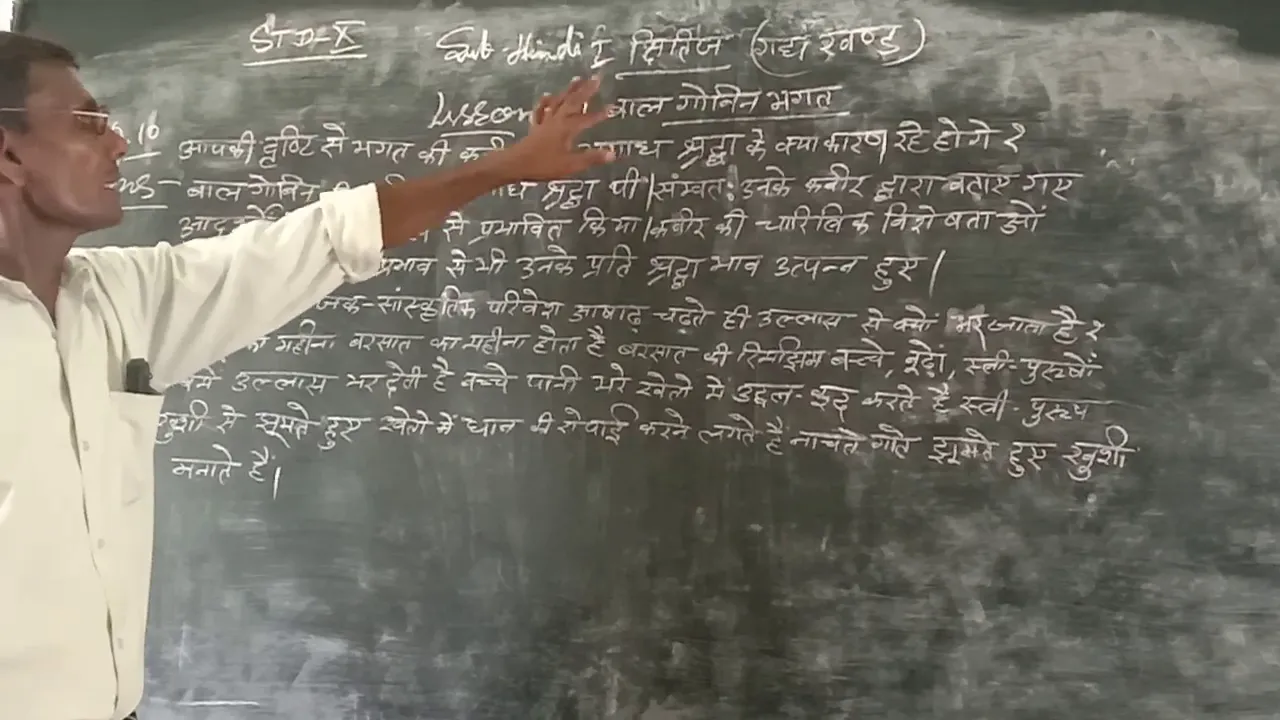 STD-X Sub-Hindi क्षितिज (गद्य खण्ड)
Lesson बाल गोबिन भगत
10 आपकी दृष्टि से भगत की श्रद्धा के क्या कारण रहे होगे ?
Ans- बाल गोबिन श्रद्धा थी। संभवत: उनके कबीर द्वारा बताए गए
से प्रभावित किया। कबीर की चारित्रिक विशेषताओं
प्रभाव से भी उनके प्रति श्रद्धा भाव उत्पन्न हुए।
सांस्कृतिक परिवेश आषाढ़ चढ़ते ही उल्लास से क्यों भर जाता है ?
महीना बरसात का महीना होता है बरसात की रिमझिम बच्चे, बूढ़ों, स्त्री-पुरुषों
उल्लास भर देती है बच्चे पानी भरे खेतों में उछल-कूद करते है स्त्री-पुरुष
खुशी से झूमते हुए खेतों में धान की रोपाई करने लगते है नाचते गाते झूमते हुए खुशी
मनाते हैं।